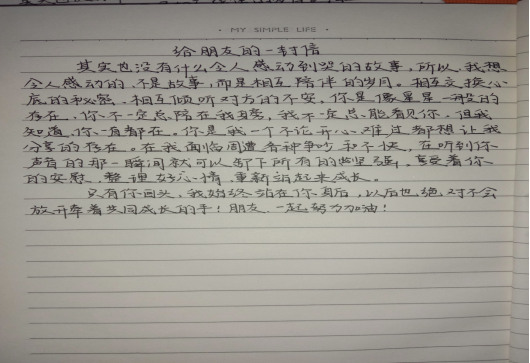 · MY SIMPLE LIFE ·
给朋友的一封信
其实也没有什么令人感动到哭的故事，所以，我想
令人感动的，不是故事，而是相互陪伴的岁月。相互交换心
底的秘密，相互倾听对方的不安。你是像星星一般的
存在，你不一定总陪在我身旁，我不一定总能看见你，但我
知道，你一直都在。你是我一个不论开心、难过都想让我
分享的存在。在我面临周遭各种争吵和不快，在听到你
声音的那一瞬间就可以卸下所有的坚强，享受着你
的安慰，整理好心情，重新站起来成长。
只有你回头，我始终站在你身后，以后也绝对不会
放开牵着共同成长的手！朋友，一起努力加油！